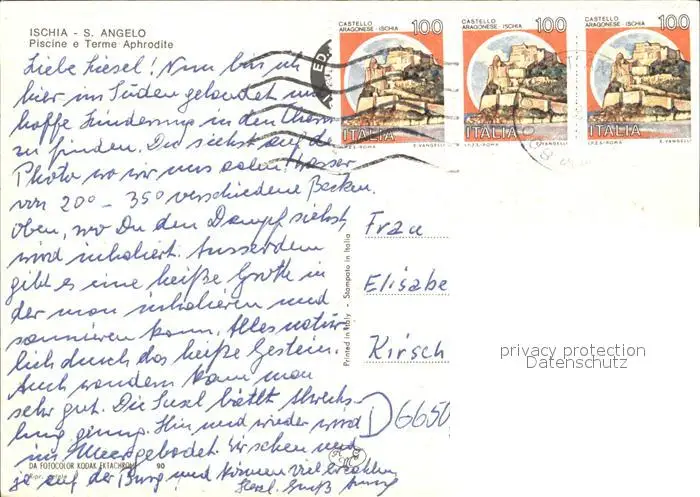 ISCHIA - S. ANGELO
Piscine e Terme Aphrodite
Liebe Liesel! Nun bin ich
hier im Süden gelandet und
hoffe Linderung in den
zu finden. Du siehst auf de
Photo wo wir uns aalen! Wasser
von 20° - 35° verschiedene Becken.
oben, wo Du den Dampf siehst,
wird inhaliert. Ausserdem
gibt es eine heiße Grotte in
der man inhalieren und
kann. Alles natür
lich durch das heiße Gestein.
Auch wandern kann man
sehr gut. Die Insel bietet Abwechs-
lung genug. Hin und wieder wird
im Meer gebadet. Wir sehen uns
ja auf der Burg und können viel erzählen
Herzl. Gruß
DA FOTOCOLOR KODAK EKTACHROM 90
Printed in Italy - Stampato in Italia
CASTELLO
ARAGONESE - ISCHIA 100
ITALIA
I.P.Z.S. - ROMA E. VANGELLI
CASTELLO
ARAGONESE - ISCHIA 100
ITALIA
I.P.Z.S. - ROMA E. VANGELLI
CASTELLO
ARAGONESE - ISCHIA 100
ITALIA
I.P.Z.S. - ROMA E. VANGELLI
Frau
Elisabe
Kirsch
D 6650
privacy protection
Datenschutz